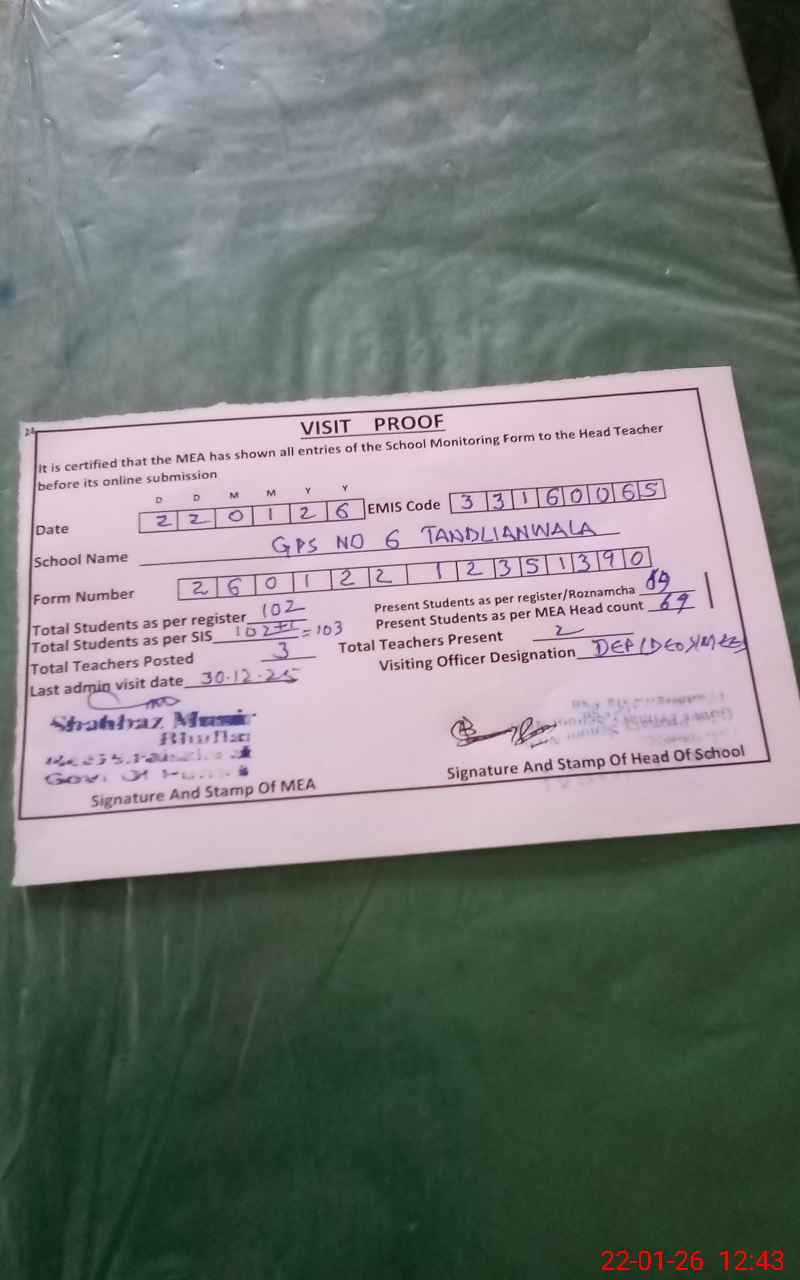 24
VISIT PROOF
It is certified that the MEA has shown all entries of the School Monitoring Form to the Head Teacher
before its online submission
D D M M Y Y
Date 2 2 0 1 2 6 EMIS Code 3 3 1 6 0 0 6 5
School Name GPS NO 6 TANDLIANWALA
Form Number 2 6 0 1 2 2 1 2 3 5 1 3 9 0
Total Students as per register 102 Present Students as per register/Roznamcha 69
Total Students as per SIS 102+1 = 103 Present Students as per MEA Head count 69
Total Teachers Posted 3 Total Teachers Present 2
Last admin visit date 30.12.25 Visiting Officer Designation
Shahbaz
Signature And Stamp Of MEA Signature And Stamp Of Head Of School
22-01-26 12:43